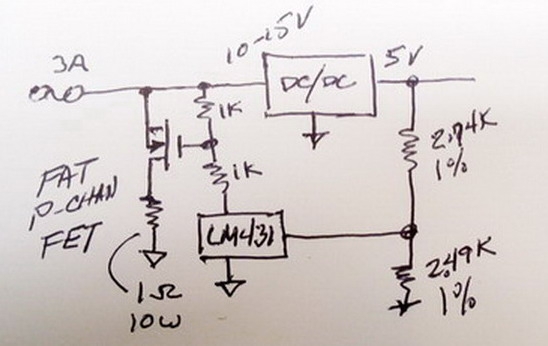 3A
10-15V
DC/DC
5V
1K
1K
2.74K
1%
FAT
P-CHAN
FET
LM431
2.49K
1%
1Ω
10W